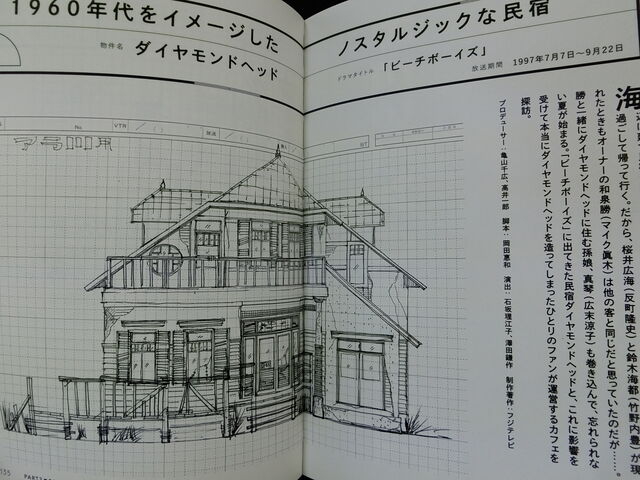 1960年代をイメージした
ノスタルジックな民宿
物件名 ダイヤモンドヘッド
ドラマタイトル 「ビーチボーイズ」
放送期間 1997年7月7日〜9月22日
No.
VTR
海
過ごして帰って行く。だから、桜井広海(反町隆史)と鈴木海都(竹野内豊)が現
れたときもオーナーの和泉勝(マイク眞木)は他の客と同じだと思っていたのだが……。
勝と一緒にダイヤモンドヘッドに住む孫娘、真琴(広末涼子)も巻き込んで、忘れられな
い夏が始まる。「ビーチボーイズ」に出てきた民宿ダイヤモンドヘッドと、これに影響を
受けて本当にダイヤモンドヘッドを造ってしまったひとりのファンが運営するカフェを
探訪。
プロデューサー:亀山千広、高井一郎 脚本:岡田惠和 演出:石坂理江子、澤田鎌作 制作著作:フジテレビ